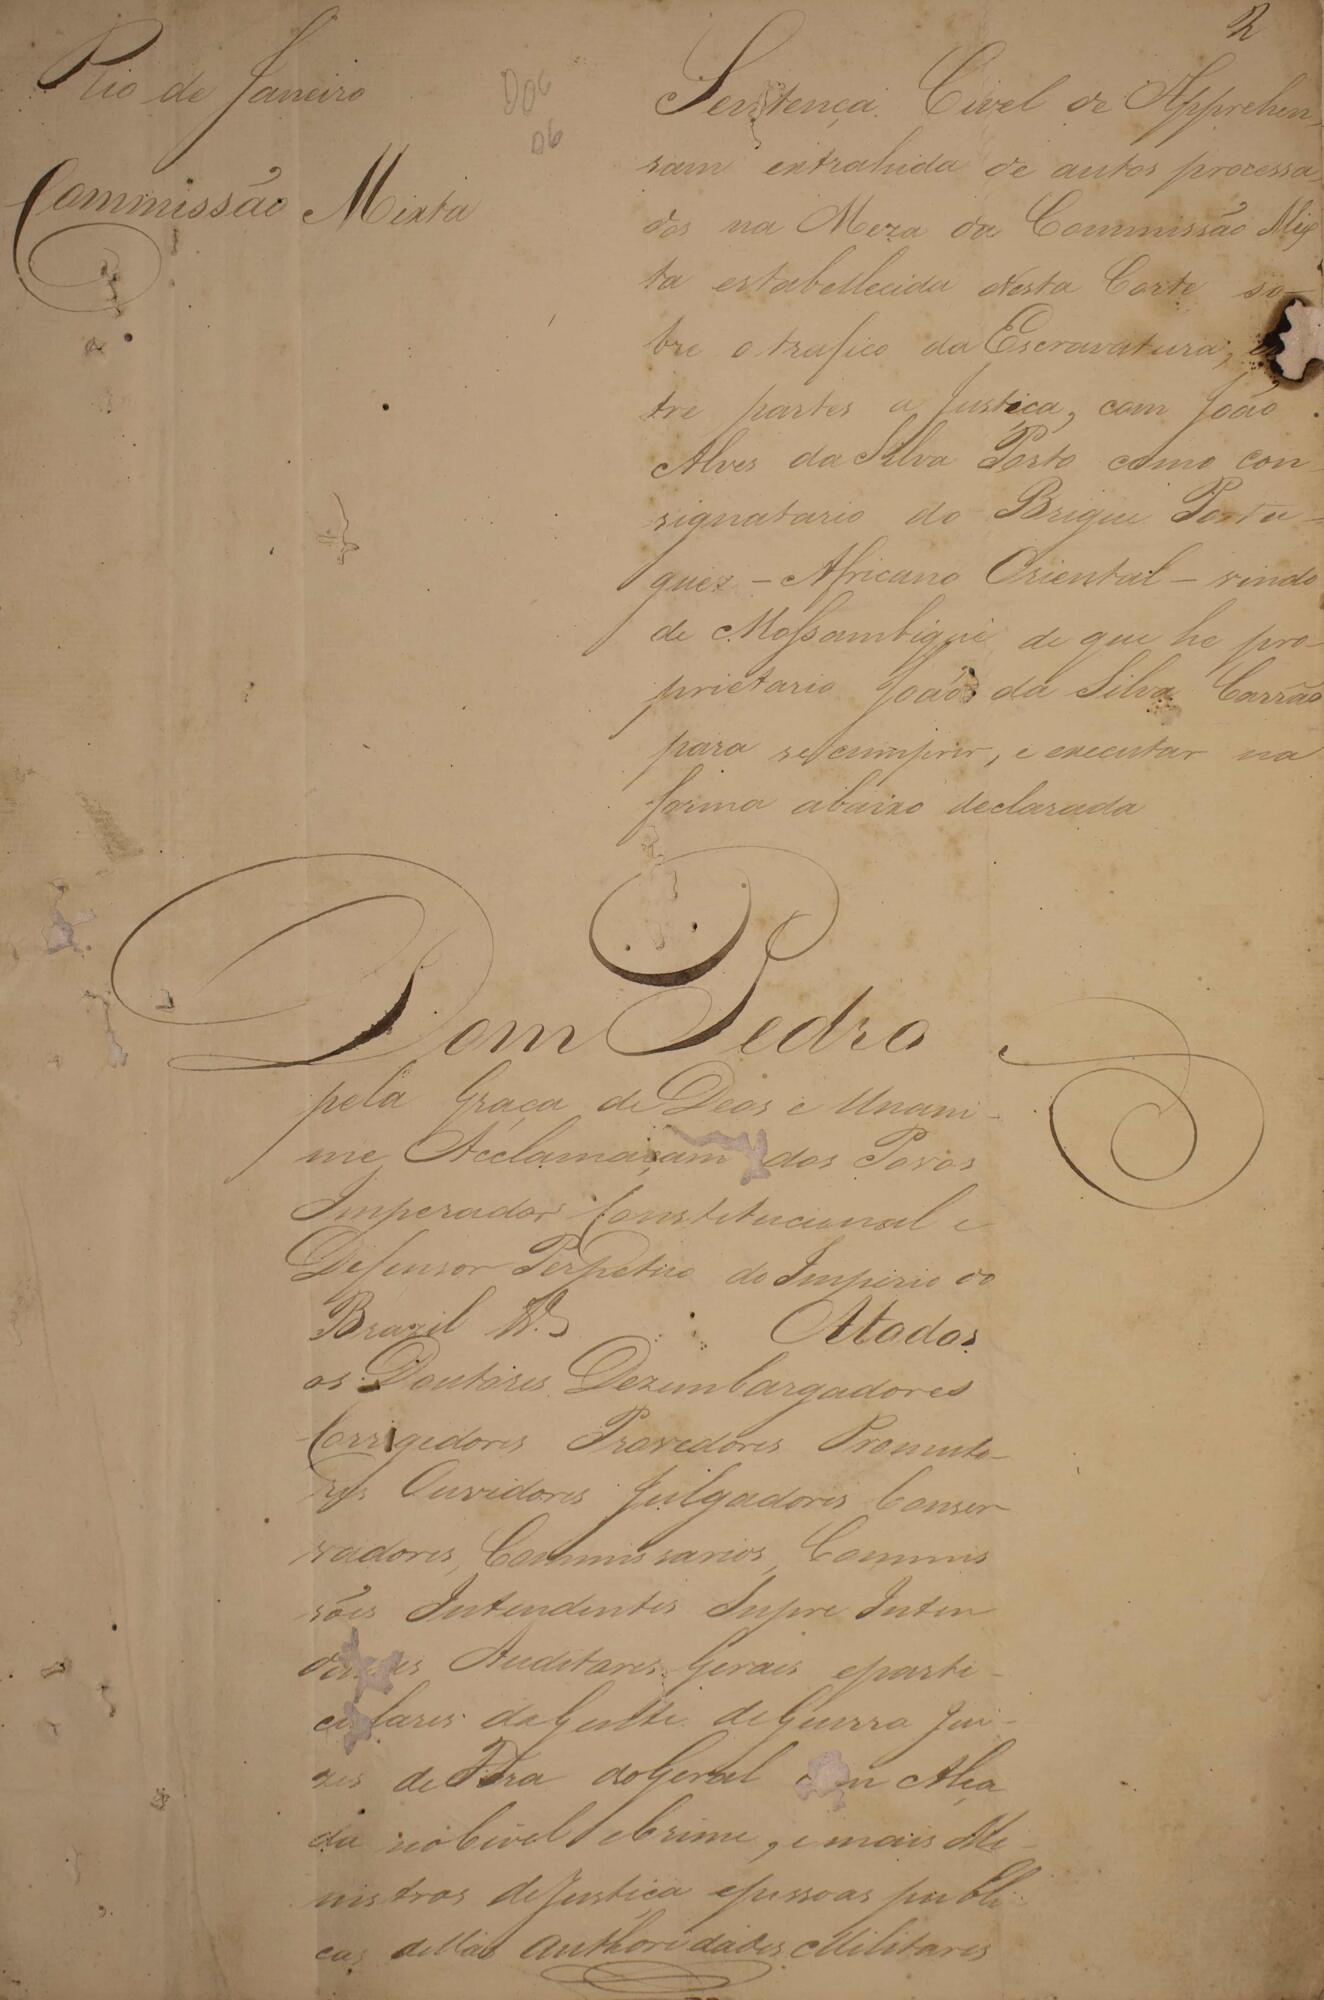 2
Rio de Janeiro
Commissão Mixta
Doc
06
Sentença Civel de Apprehen-
sam extrahida de autos processa-
dos na Meza da Commissão Mix
ta estabellecida nesta Corte so-
bre o trafico da Escravatura, en
tre partes a Justiça, com João
Alves da Silva Porto como con-
signatario do Brigue Portu-
guez - Africano Oriental - vindo
de Mossambique de que he pro-
prietario João da Silva Carrão
para se cumprir, e executar na
forma abaixo declarada
Dom Pedro
pela Graça de Deos e Unani-
me Acclamaçam dos Povos
Imperador Constitucional e
Defensor Perpetuo do Imperio do
Brazil &.ª Atodos
os Doutores Dezembargadores
Corrigedores Provedores Promoto-
res Ouvidores Julgadores Conser
vadores, Commissarios, Commis
sões Intendentes Supre Inten
dentes Auditores Gerais eparti-
culares daGente deGuerra Jui-
zes de Fora doGeral com Alça
da noCivel eCrime, e mais Mi
nistros deJustiça epessoas publi-
cas dellas authoridades Militares